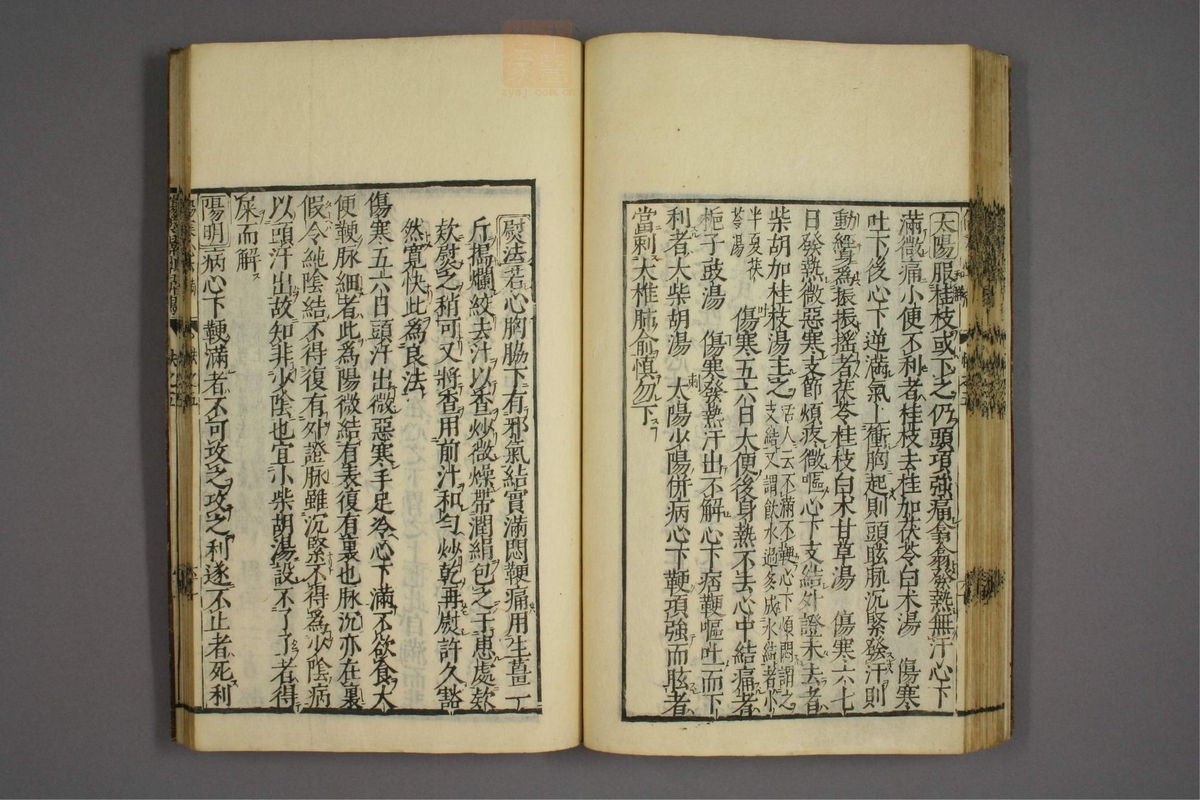 太陽服桂枝或下之仍頭項強痛翕翕發熱無汗心下
滿微痛小便不利者桂枝去桂加茯苓白术湯　傷寒
吐下後心下逆滿氣上衝胸起則頭眩脉沉緊發汗則
動經爲振振搖者茯苓桂枝白术甘草湯　傷寒六七
日發熱微惡寒支節煩疼微嘔心下支結外證未去者
柴胡加桂枝湯主之活人云不滿不鞕心下煩悶謂之
支結又謂飲水過多成水結者小
半夏茯
苓湯　傷寒五六日大便後身熱不去心中結痛者
梔子豉湯　傷寒發熱汗出不解心下痞鞕嘔吐而下
利者大柴胡湯　太陽少陽併病心下鞕項強而眩者
當刺大椎肺俞慎勿下
熨法若心胸脇下有邪氣結實滿悶鞕痛用生薑一
斤搗爛絞去汁以查炒微燥帶潤絹包之于患處款
款熨之稍可又將查用前汁和勻炒乾再熨許久豁
然寬快此爲良法
傷寒五六日頭汗出微惡寒手足冷心下滿不欲食大
便鞕脉細者此爲陽微結有表復有裏也脉沉亦在裏
假令純陰結不得復有外證脉雖沉緊不得爲少陰病
以頭汗出故知非少陰也宜小柴胡湯設不了了者得
屎而解
陽明病心下鞕滿者不可攻之攻之利遂不止者死利